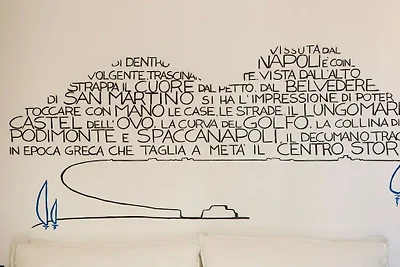 VISSUTA DAL
DI DENTRO NAPOLI È COIN
VOLGENTE, TRASCINA TE. VISTA DALL'ALTO
STRAPPA IL CUORE DAL PETTO. DAL BELVEDERE
DI SAN MARTINO SI HA L'IMPRESSIONE DI POTER
TOCCARE CON MANO LE CASE, LE STRADE IL LUNGOMARE
CASTEL DELL'OVO. LA CURVA DEL GOLFO. LA COLLINA DI
PODIMONTE E SPACCANAPOLI, IL DECUMANO TRAC
IN EPOCA GRECA CHE TAGLIA A METÀ IL CENTRO STOR